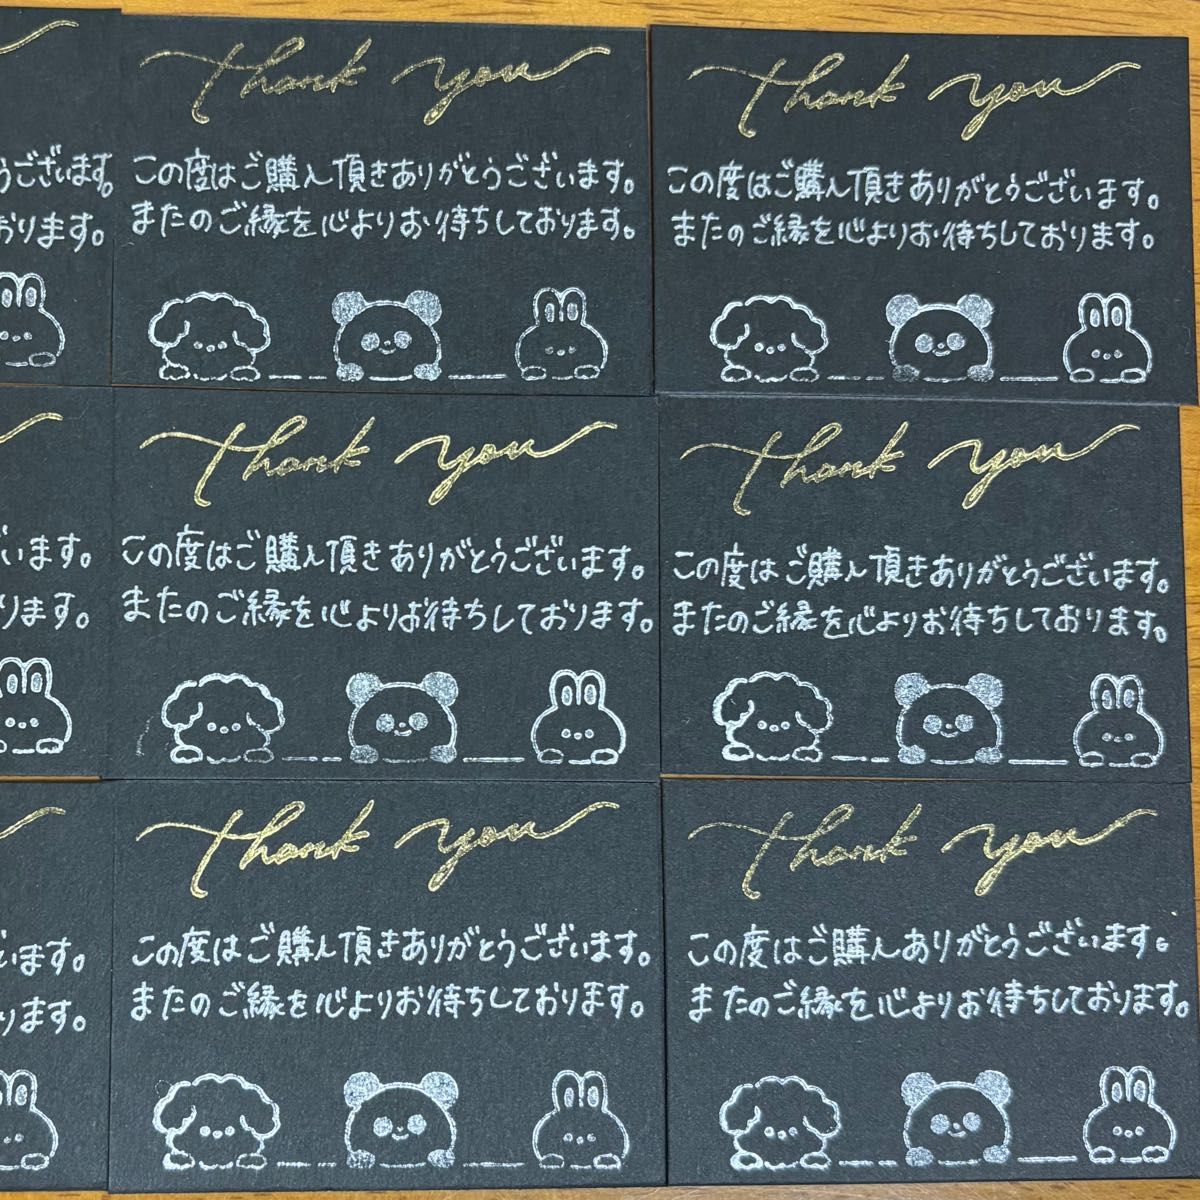 Thank you
Thank you
うございます。
この度はご購入頂きありがとうございます。
この度はご購入頂きありがとうございます。
おります。
またのご縁を心よりお待ちしております。
またのご縁を心よりお待ちしております。
Thank you
Thank you
います。
この度はご購入頂きありがとうございます。
この度はご購入頂きありがとうございます。
ります。
またのご縁を心よりお待ちしております。
またのご縁を心よりお待ちしております。
Thank you
Thank you
います。
この度はご購入頂きありがとうございます。
この度はご購入ありがとうございます。
ります。
またのご縁を心よりお待ちしております。
またのご縁を心よりお待ちしております。